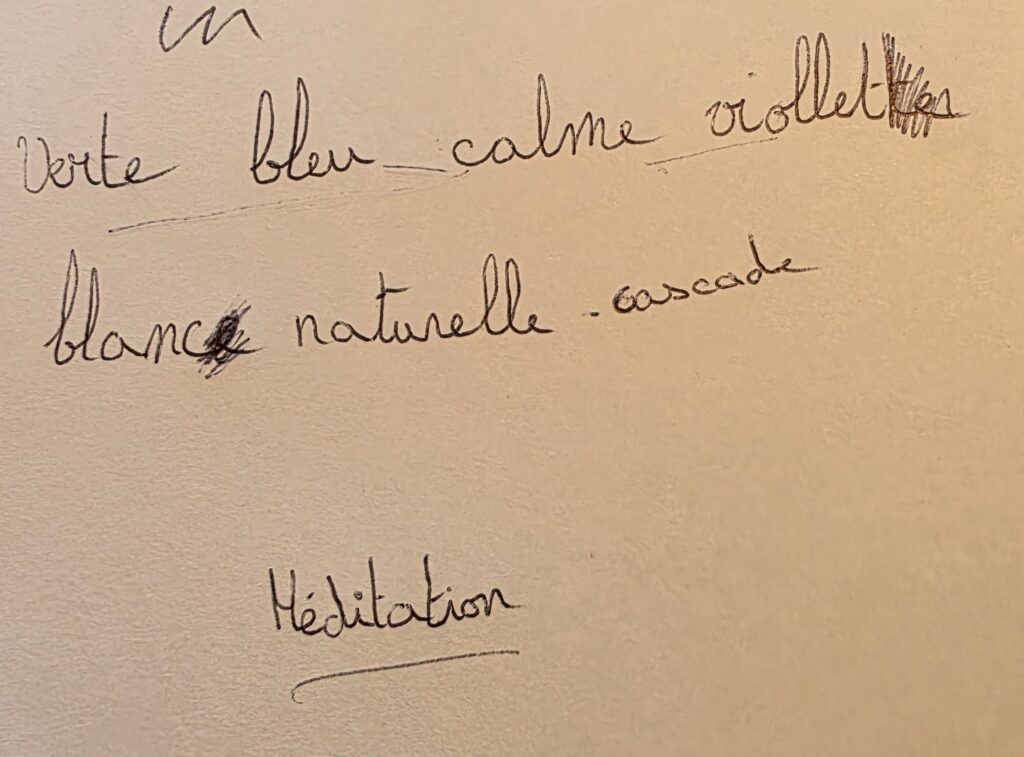 Verte bleu calme viollet
blanc naturelle - cascade
Méditation